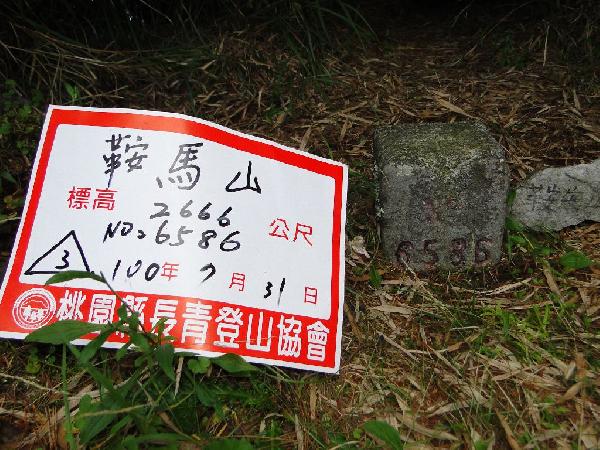 鞍馬山
標高 2666 公尺
NO:6586
3 100年7月31日
桃園縣長青登山協會
6586